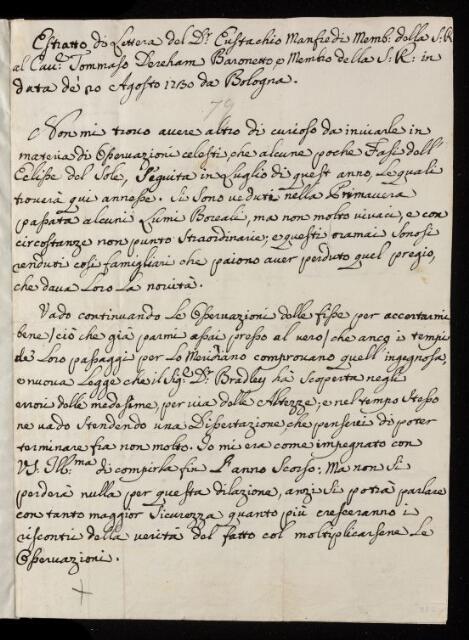 Estratto di Lettera del Dr Eustachio Manfredi Memb. della S: R
al Cav.r Tommaso Dereham Baronetto e Membro della S: R: in
data dé 20 Agosto 1730 da Bologna.
79
Non mi trovo avere altro di curioso da inviarle in
materia di Osservazioni celesti, che alcune poche Fasi dell'
Eclisse del Sole, seguita in Luglio di quest' anno, le quali
troverà qui annesse. Si sono vedute nella Primavera
passata alcuni Lumi Boreali, ma non molto vivaci, e con
circostanze non punto straordinarie; e questi oramai sonosi
renduti così famigliari che paiono aver perduto quel pregio,
che dava Loro La novità.
Vado continuando Le Osservazioni delle fisse per accertarmi
bene/ciò che già parmi assai presso al vero/che anco i tempi
de' Loro passaggi per Lo Meridiano comprovano quell' ingegnosa,
e nuova Legge che il Sig.r Dr Bradley hà scoperta negli
errori delle medesime, per via delle Altezze; e nel tempo stesso
ne vado stendendo una Dissertazione che penserei di poter
terminare fra non molto. Io mi era come impegnato con
VS. Ill.ma di compirla fin l'anno scorso: Ma non si
perderà nulla per questa dilazione, anzi si potrà parlare
con tanto maggior sicurezza quanto più cresceranno i
riscontri della verità del fatto col moltiplicarsene Le
Osservazioni.